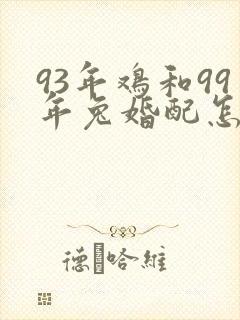 93年鸡和99
年兔婚配怎
德哈維